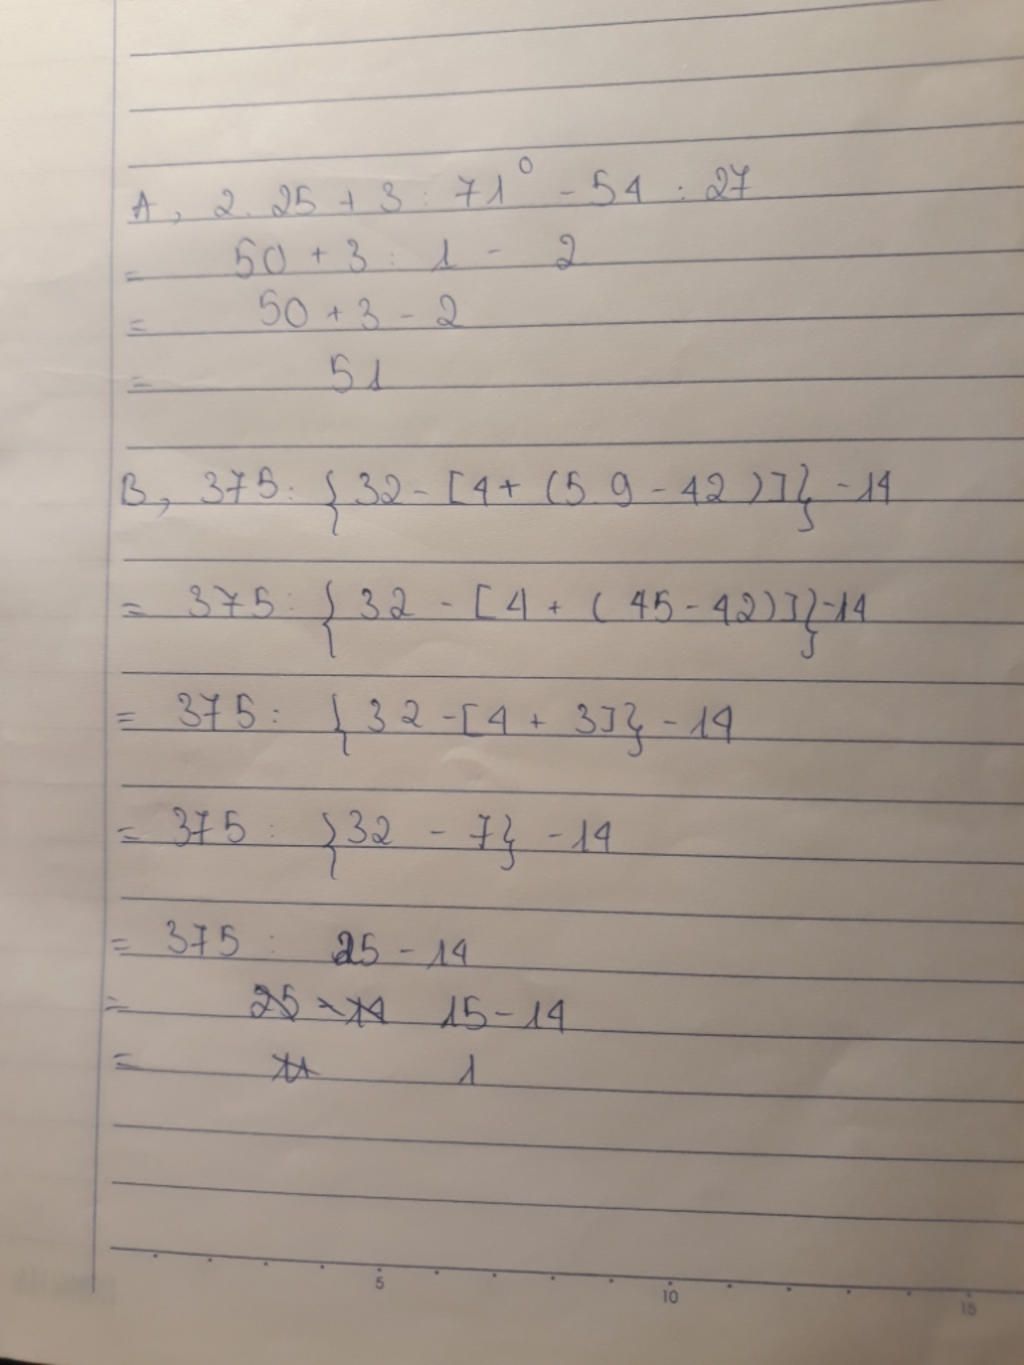 A, 2. 25 + 3 : 71⁰ - 54 : 27
= 50 + 3 : 1 - 2
= 50 + 3 - 2
= 51
B, 375 : { 32 - [4 + (5.9 - 42)]} - 14
= 375 : { 32 - [4 + (45 - 42)]} - 14
= 375 : { 32 - [4 + 3]} - 14
= 375 : {32 - 7} - 14
= 375 : 25 - 14
= 25 - 14 15 - 14
= 11 1
5 10 15